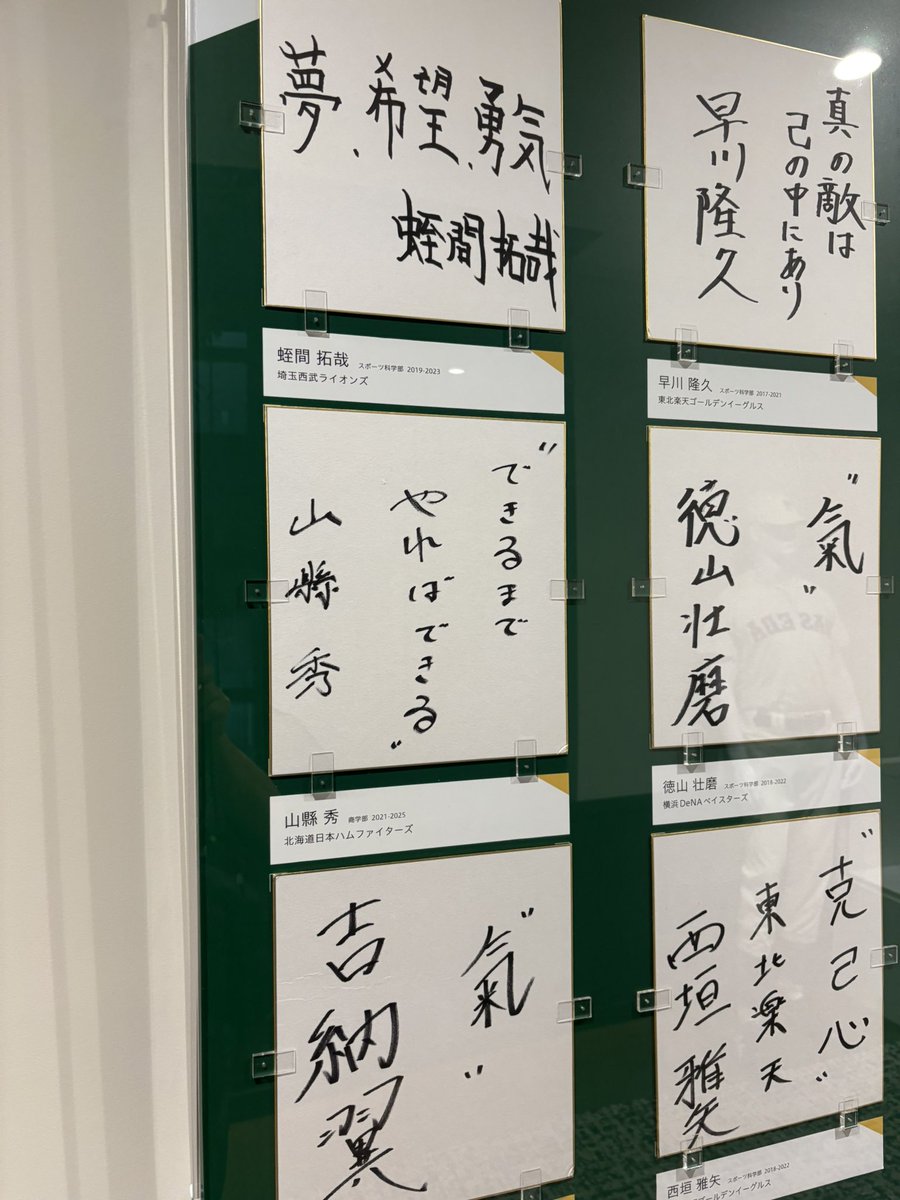 夢、希望、勇気
蛭間拓哉
蛭間 拓哉 スポーツ科学部 2019-2023
埼玉西武ライオンズ
真の敵は
己の中にあり
早川隆久
早川 隆久 スポーツ科学部 2017-2021
東北楽天ゴールデンイーグルス
"できるまで
やればできる"
山縣秀
山縣 秀 商学部 2021-2025
北海道日本ハムファイターズ
"氣"
徳山壮磨
徳山 壮磨 スポーツ科学部 2018-2022
横浜DeNAベイスターズ
"氣"
吉納翼
"克己心"
東北楽天
西垣雅矢
西垣 雅矢 スポーツ科学部 2018-2022
ゴールデンイーグルス
WASEDA